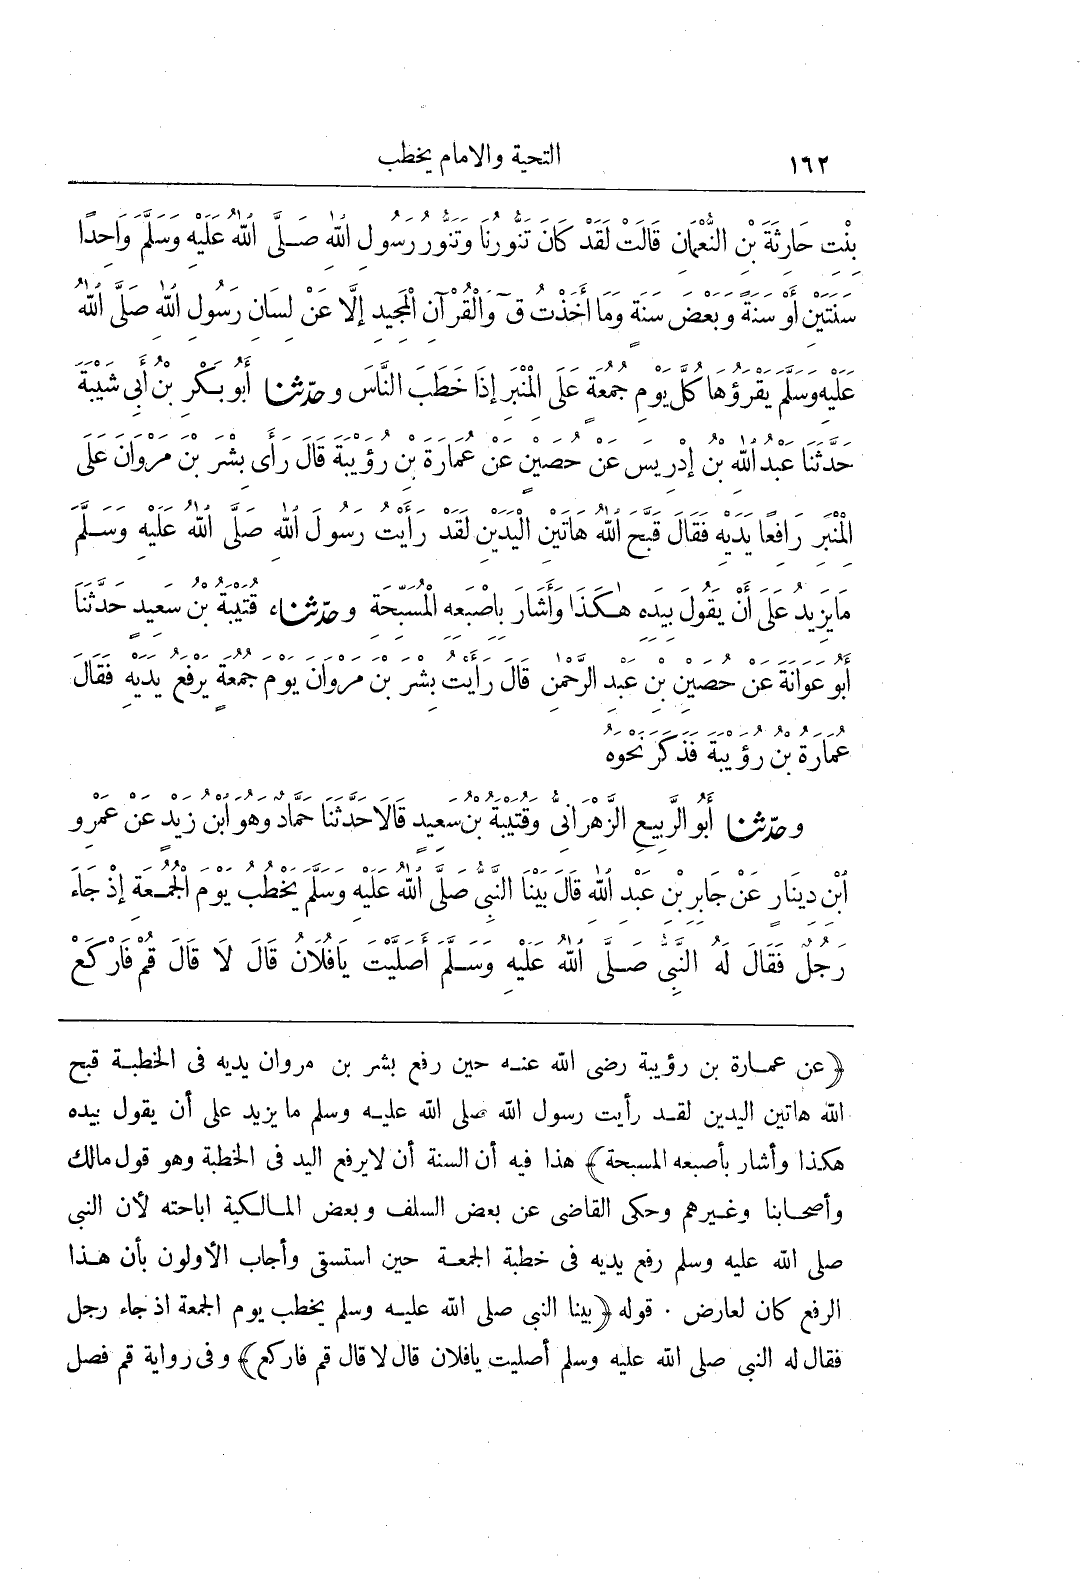 ١٦٢ التحية والامام يخطب
بِنْتِ حَارِثَةَ بْنِ النُّعْمَانِ قَالَتْ لَقَدْ كَانَ تَنُّورُنَا وَتَنُّورُ رَسُولِ اللهِ صَلَّى اللهُ عَلَيْهِ وَسَلَّمَ وَاحِدًا
سَنَتَيْنِ أَوْ سَنَةً وَبَعْضَ سَنَةٍ وَمَا أَخَذْتُ قٓ وَالْقُرْآنِ الْمَجِيدِ إِلَّا عَنْ لِسَانِ رَسُولِ اللهِ صَلَّى اللهُ
عَلَيْهِ وَسَلَّمَ يَقْرَؤُهَا كُلَّ يَوْمِ جُمُعَةٍ عَلَى الْمِنْبَرِ إِذَا خَطَبَ النَّاسَ وحدثنا أَبُو بَكْرِ بْنُ أَبِي شَيْبَةَ
حَدَّثَنَا عَبْدُ اللهِ بْنُ إِدْرِيسَ عَنْ حُصَيْنٍ عَنْ عُمَارَةَ بْنِ رُؤَيْبَةَ قَالَ رَأَى بِشْرَ بْنَ مَرْوَانَ عَلَى
الْمِنْبَرِ رَافِعًا يَدَيْهِ فَقَالَ قَبَّحَ اللهُ هَاتَيْنِ الْيَدَيْنِ لَقَدْ رَأَيْتُ رَسُولَ اللهِ صَلَّى اللهُ عَلَيْهِ وَسَلَّمَ
مَا يَزِيدُ عَلَى أَنْ يَقُولَ بِيَدِهِ هٰكَذَا وَأَشَارَ بِإِصْبَعِهِ الْمُسَبِّحَةِ وحدثناه قُتَيْبَةُ بْنُ سَعِيدٍ حَدَّثَنَا
أَبُو عَوَانَةَ عَنْ حُصَيْنِ بْنِ عَبْدِ الرَّحْمٰنِ قَالَ رَأَيْتُ بِشْرَ بْنَ مَرْوَانَ يَوْمَ جُمُعَةٍ يَرْفَعُ يَدَيْهِ فَقَالَ
عُمَارَةُ بْنُ رُؤَيْبَةَ فَذَكَرَ نَحْوَهُ
وحدثنا أَبُو الرَّبِيعِ الزَّهْرَانِيُّ وَقُتَيْبَةُ بْنُ سَعِيدٍ قَالَا حَدَّثَنَا حَمَّادٌ وَهُوَ ابْنُ زَيْدٍ عَنْ عَمْرِو
ابْنِ دِينَارٍ عَنْ جَابِرِ بْنِ عَبْدِ اللهِ قَالَ بَيْنَا النَّبِيُّ صَلَّى اللهُ عَلَيْهِ وَسَلَّمَ يَخْطُبُ يَوْمَ الْجُمُعَةِ إِذْ جَاءَ
رَجُلٌ فَقَالَ لَهُ النَّبِيُّ صَلَّى اللهُ عَلَيْهِ وَسَلَّمَ أَصَلَّيْتَ يَا فُلَانُ قَالَ لَا قَالَ قُمْ فَارْكَعْ
﴿عن عمارة بن رؤيبة رضى الله عنه حين رفع بشر بن مروان يديه فى الخطبة قبح
الله هاتين اليدين لقد رأيت رسول الله صلى الله عليه وسلم ما يزيد على أن يقول بيده
هكذا وأشار بأصبعه المسبحة﴾ هذا فيه أن السنة أن لا يرفع اليد فى الخطبة وهو قول مالك
وأصحابنا وغيرهم وحكى القاضى عن بعض السلف وبعض المالكية اباحته لأن النبي
صلى الله عليه وسلم رفع يديه فى خطبة الجمعة حين استسقى وأجاب الأولون بأن هذا
الرفع كان لعارض . قوله ﴿بينا النبي صلى الله عليه وسلم يخطب يوم الجمعة اذ جاء رجل
فقال له النبى صلى الله عليه وسلم أصليت يافلان قال لا قال قم فاركع﴾ وفى رواية قم فصل